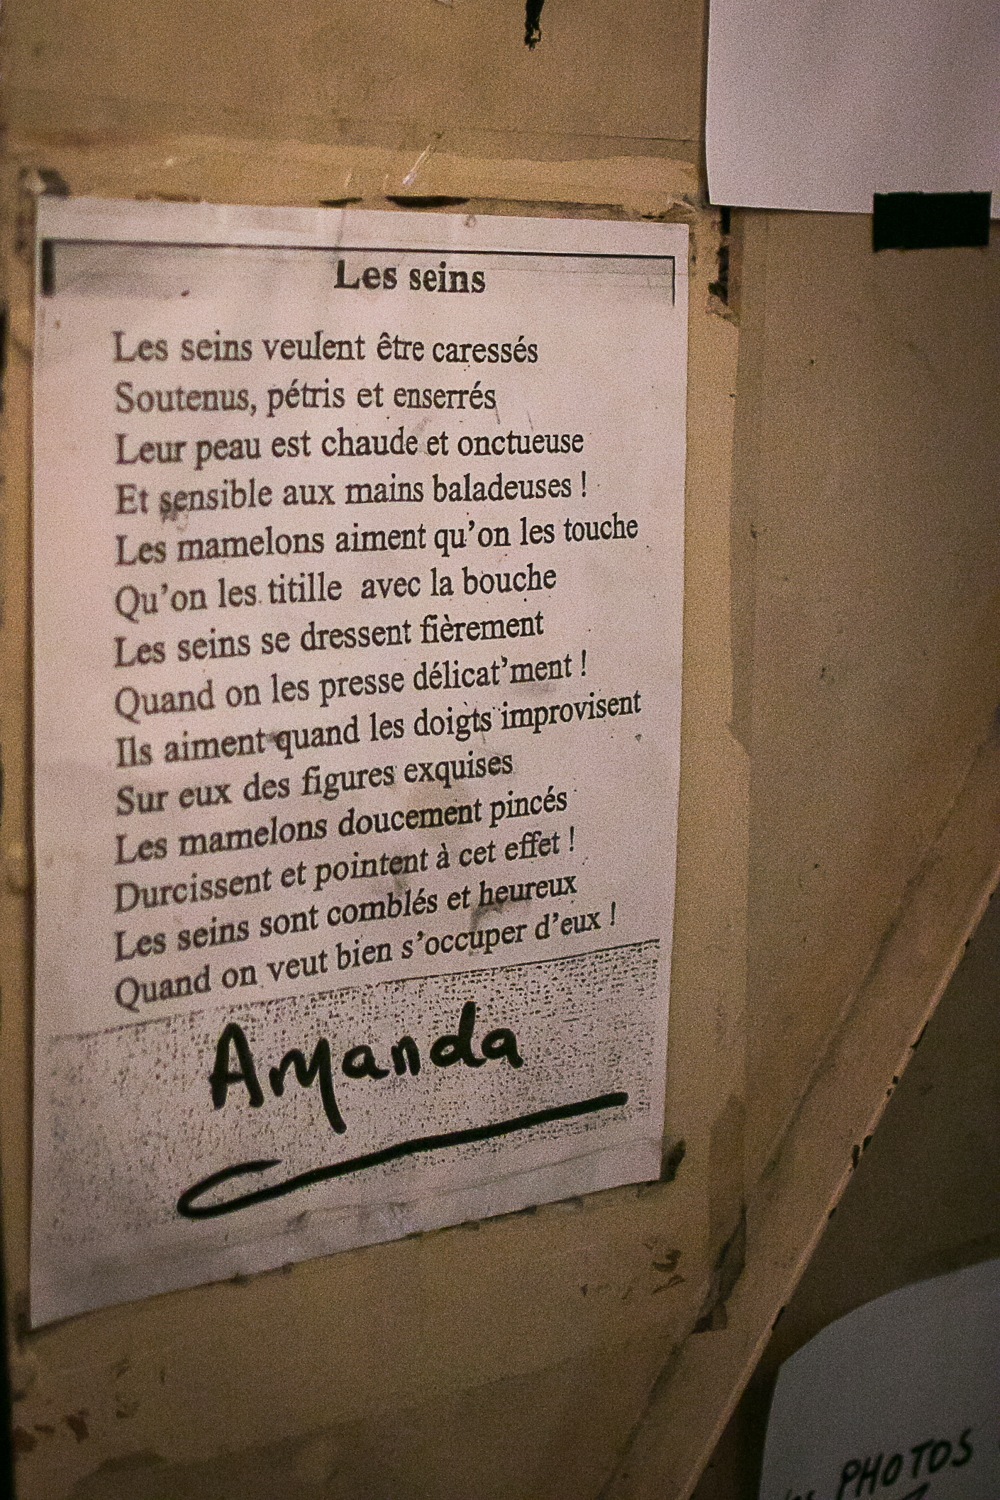 Les seins
Les seins veulent être caressés
Soutenus, pétris et enserrés
Leur peau est chaude et onctueuse
Et sensible aux mains baladeuses !
Les mamelons aiment qu’on les touche
Qu’on les titille avec la bouche
Les seins se dressent fièrement
Quand on les presse délicat’ment !
Ils aiment quand les doigts improvisent
Sur eux des figures exquises
Les mamelons doucement pincés
Durcissent et pointent à cet effet !
Les seins sont comblés et heureux
Quand on veut bien s’occuper d’eux !
Amanda
PHOTOS